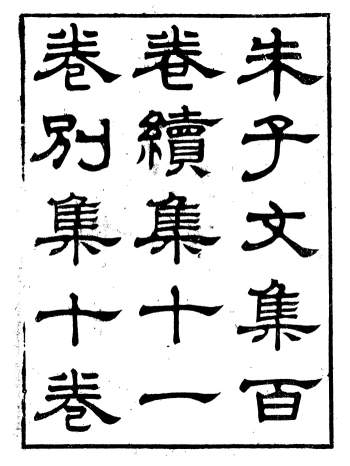 朱子文集百
卷續集十一
卷別集十卷